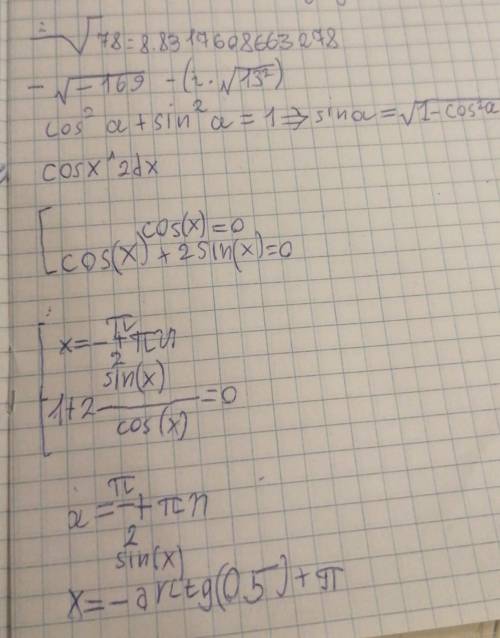 = √78 = 8.8317608663278
- √-169 - (i · √13²)
cos² a + sin² a = 1 ⇒ sin a = √1-cos² a
cosx^2dx
cos(x)=0
cos(x) + 2sin(x)=0
π
x=-+πn
2
sin(x)
1+2 ——— =0
cos(x)
π
x=-+πn
2
sin(x)
x=-arctg(0.5)+π